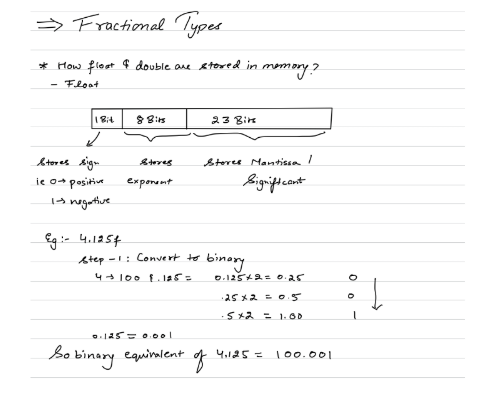 ⇒ Fractional Types
* How float & double are stored in memory?
- Float
1 Bit 8 Bits 23 Bits
Stores sign Stores Stores Mantissa /
ie 0→ positive exponent Significant
1→ negative
Eg:- 4.125f
Step-1: Convert to binary
4→100 & .125 = 0.125×2 = 0.25 0
.25×2 = 0.5 0
.5×2 = 1.00 1
0.125 = 0.001
So binary equivalent of 4.125 = 100.001